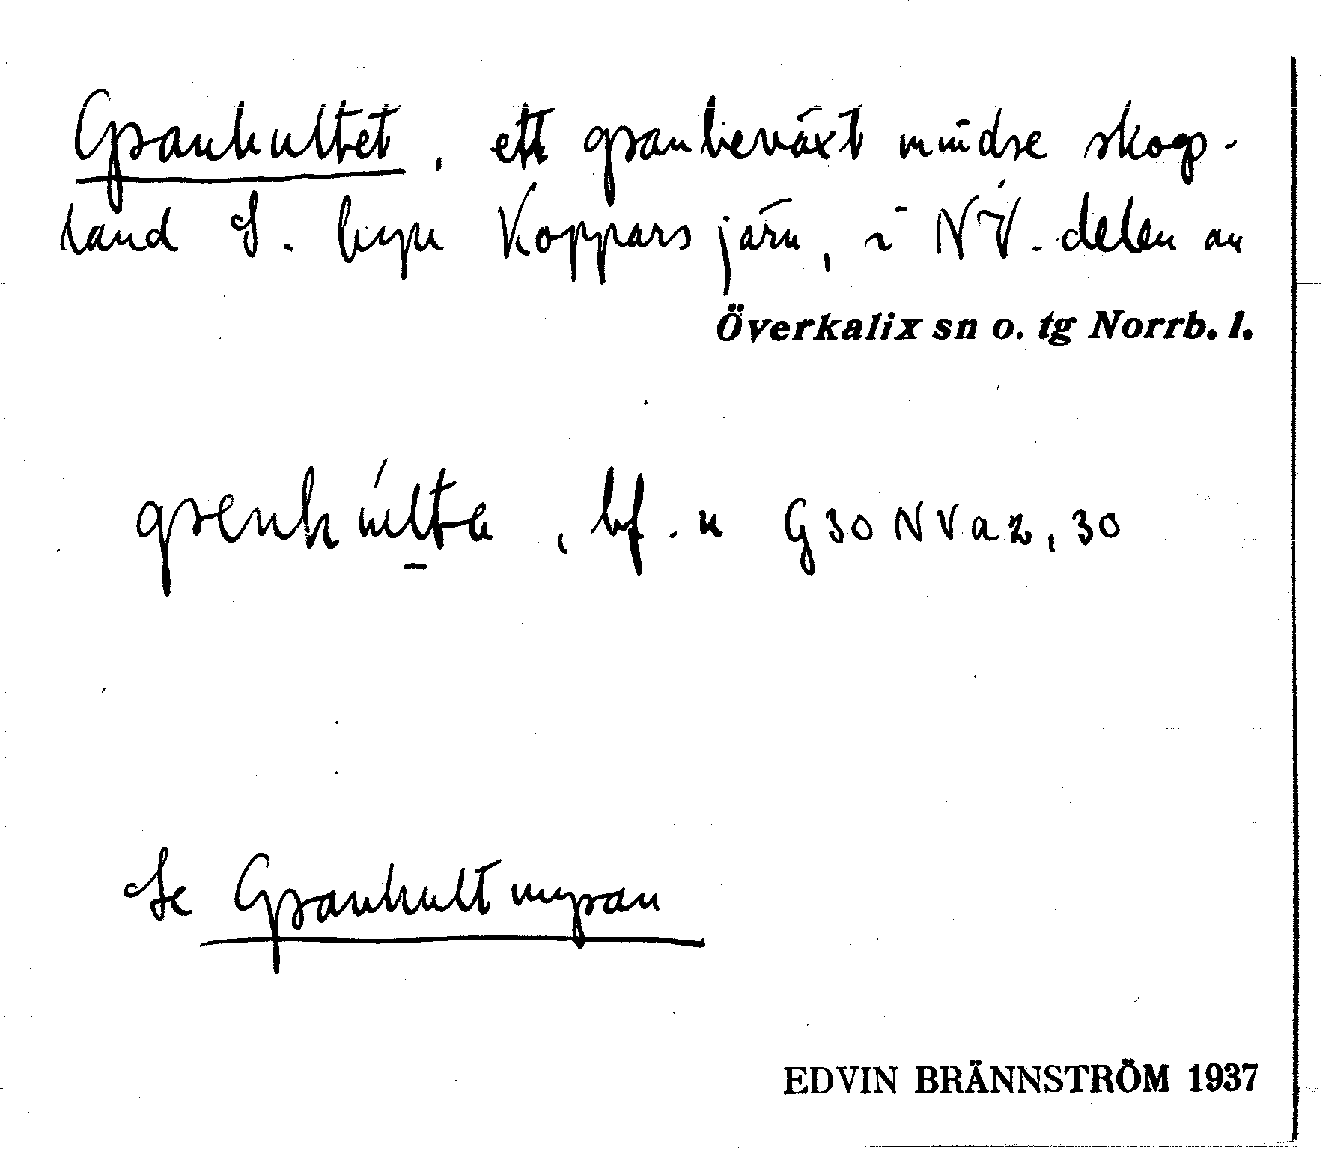 Grankultet, ett granbeväxt mindre skog-
land S. byn Kopparsjärn, i NV-delen av
Överkalix sn o. tg Norrb. l.
grenkúlte, bf. n G30NVa2,30
Se Grankultmyran
EDVIN BRÄNNSTRÖM 1937